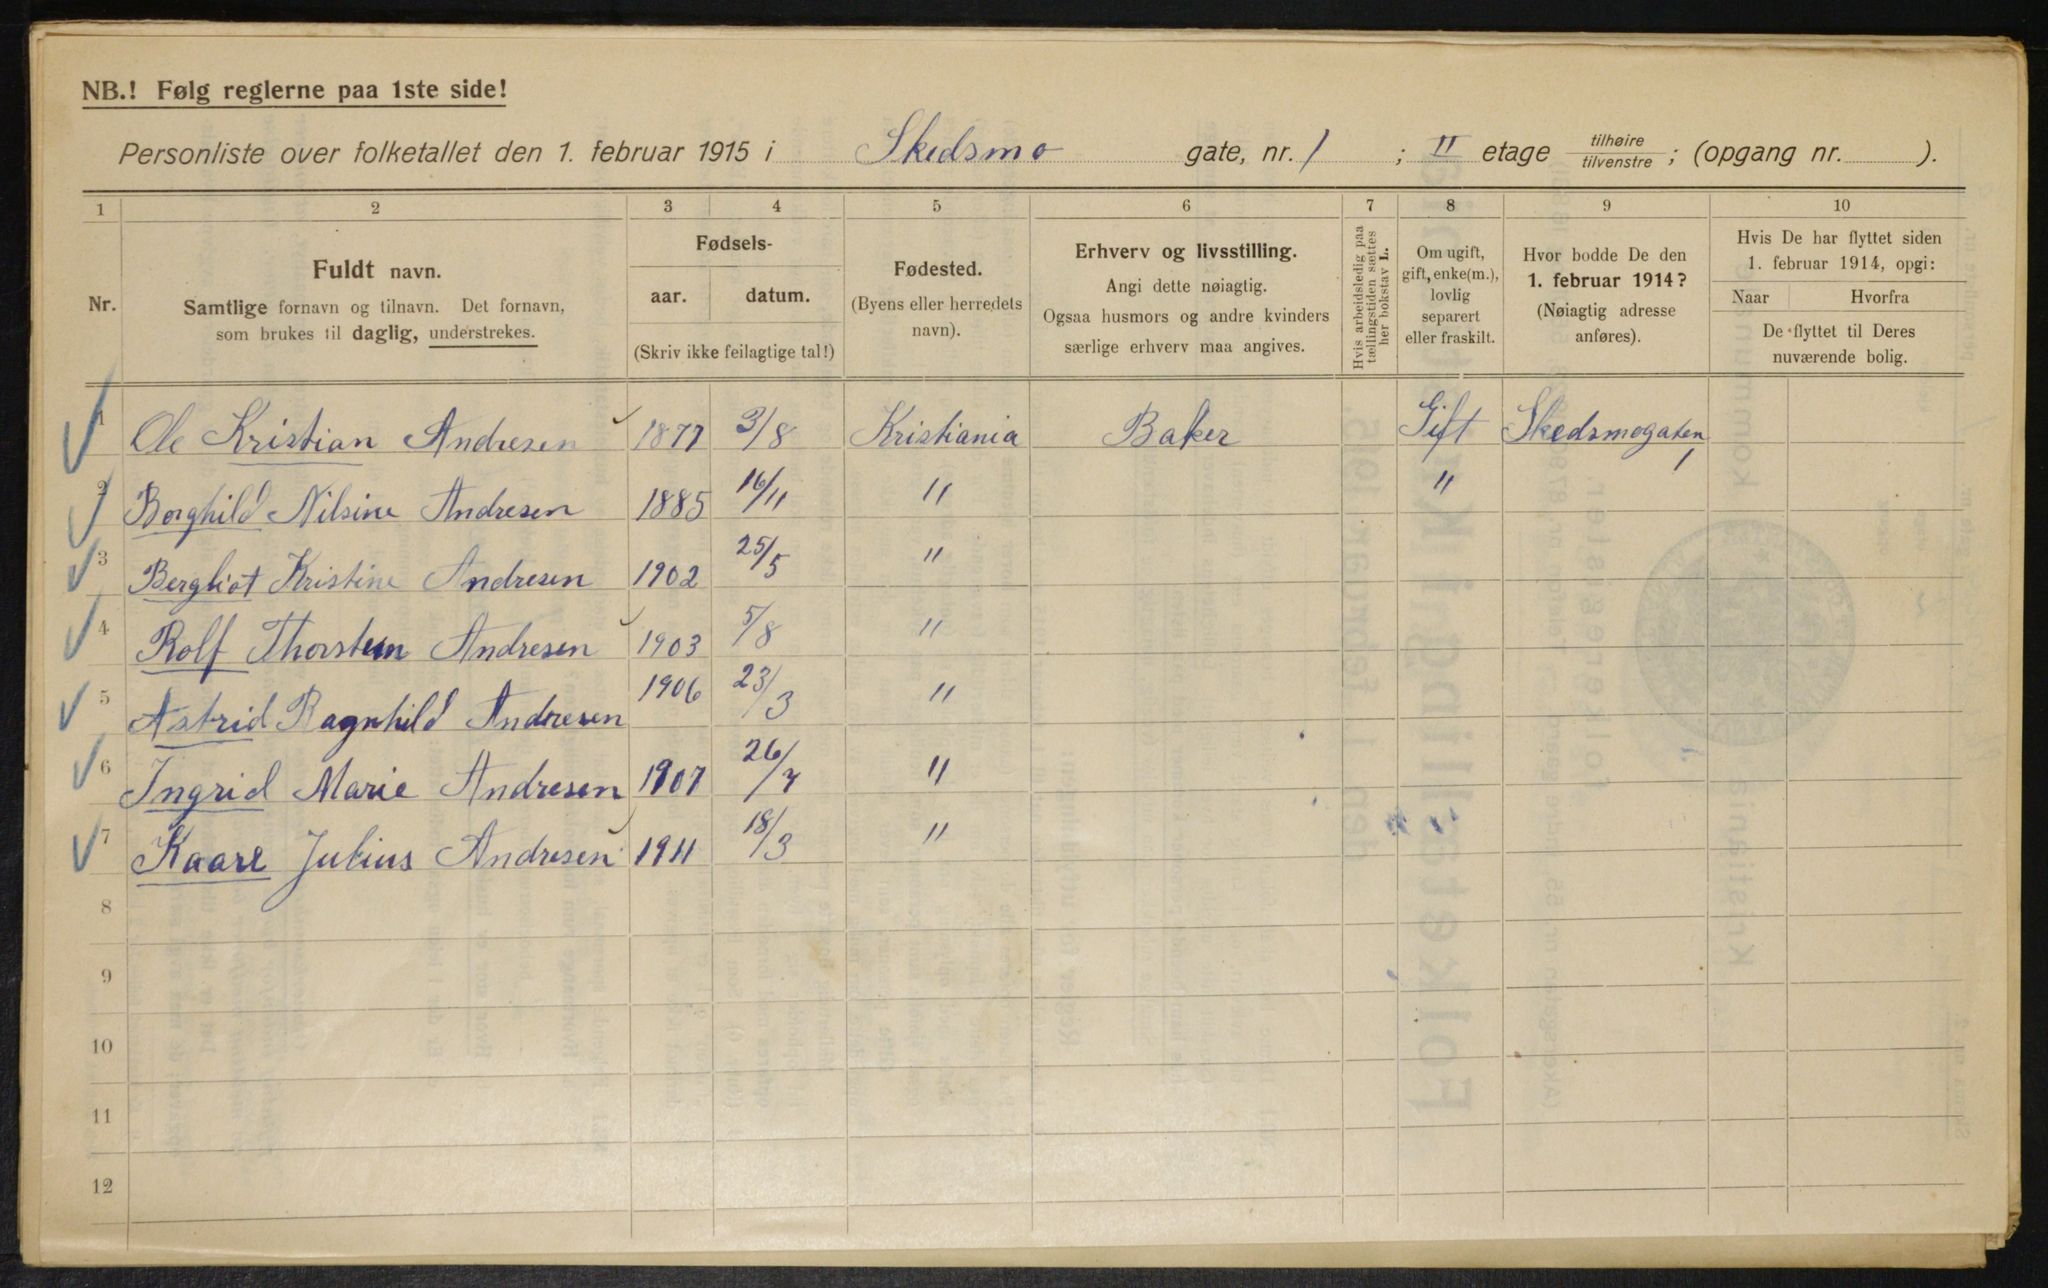 NB.! Følg reglerne paa 1ste side!
Personliste over folketallet den 1. februar 1915 i Skedsmo gate, nr. 1 ; II etage tilhøire / tilvenstre ; (opgang nr. ).
1 2 3 4 5 6 7 8 9 10
Nr.
Fuldt navn.
Samtlige fornavn og tilnavn. Det fornavn,
som brukes til daglig, understrekes.
Fødsels-
aar. datum.
(Skriv ikke feilagtige tal!)
Fødested.
(Byens eller herredets
navn).
Erhverv og livsstilling.
Angi dette nøiagtig.
Ogsaa husmors og andre kvinders
særlige erhverv maa angives.
Hvis arbeidsledig paa
tællingstiden sættes
her bokstav L.
Om ugift,
gift, enke(m.),
lovlig
separert
eller fraskilt.
Hvor bodde De den
1. februar 1914?
(Nøiagtig adresse
anføres).
Hvis De har flyttet siden
1. februar 1914, opgi:
Naar Hvorfra
De flyttet til Deres
nuværende bolig.
1 Ole Kristian Andresen 1877 3/8 Kristiania Baker Gift Skedsmogaten 1
2 Borghild Nilsine Andresen 1885 16/11 " "
3 Bergliot Kristine Andresen 1902 25/5 "
4 Rolf Thorstein Andresen 1903 5/8 "
5 Astrid Ragnhild Andresen 1906 23/3 "
6 Ingrid Marie Andresen 1907 26/7 "
7 Kaare Julius Andresen 1911 18/3 "
8
9
10
11
12